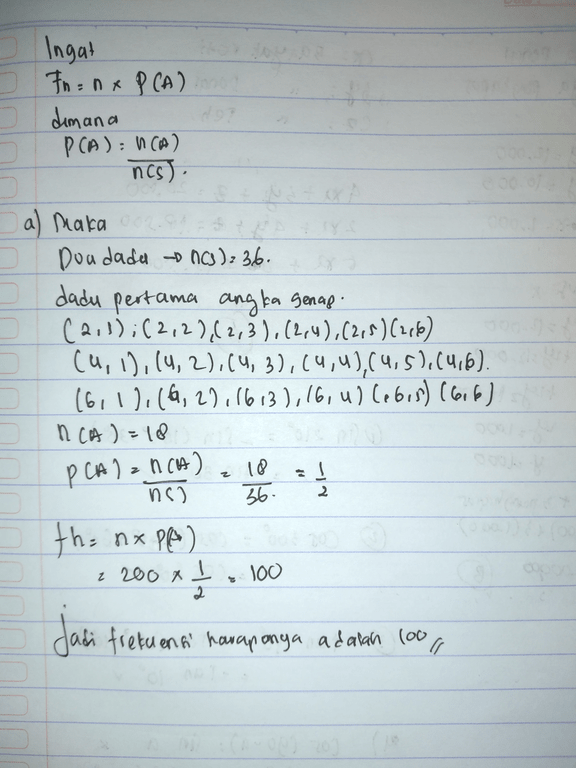 Ingat
Fn = n x P(A)
dimana
P(A) = n(A)
n(s).
a) Maka
Dua dadu → n(s) = 36.
dadu pertama angka genap.
(2,1), (2,2), (2,3), (2,4), (2,5) (2,6)
(4,1), (4,2), (4,3), (4,4), (4,5), (4,6).
(6,1), (6,2), (6,3), (6,4) (6,5) (6,6)
n(A) = 18
P(A) = n(A) = 18 = 1
n(s) 36. 2
fh = n x P(A)
= 200 x 1 = 100
2
Jadi frekuensi harapanya adalah 100 //